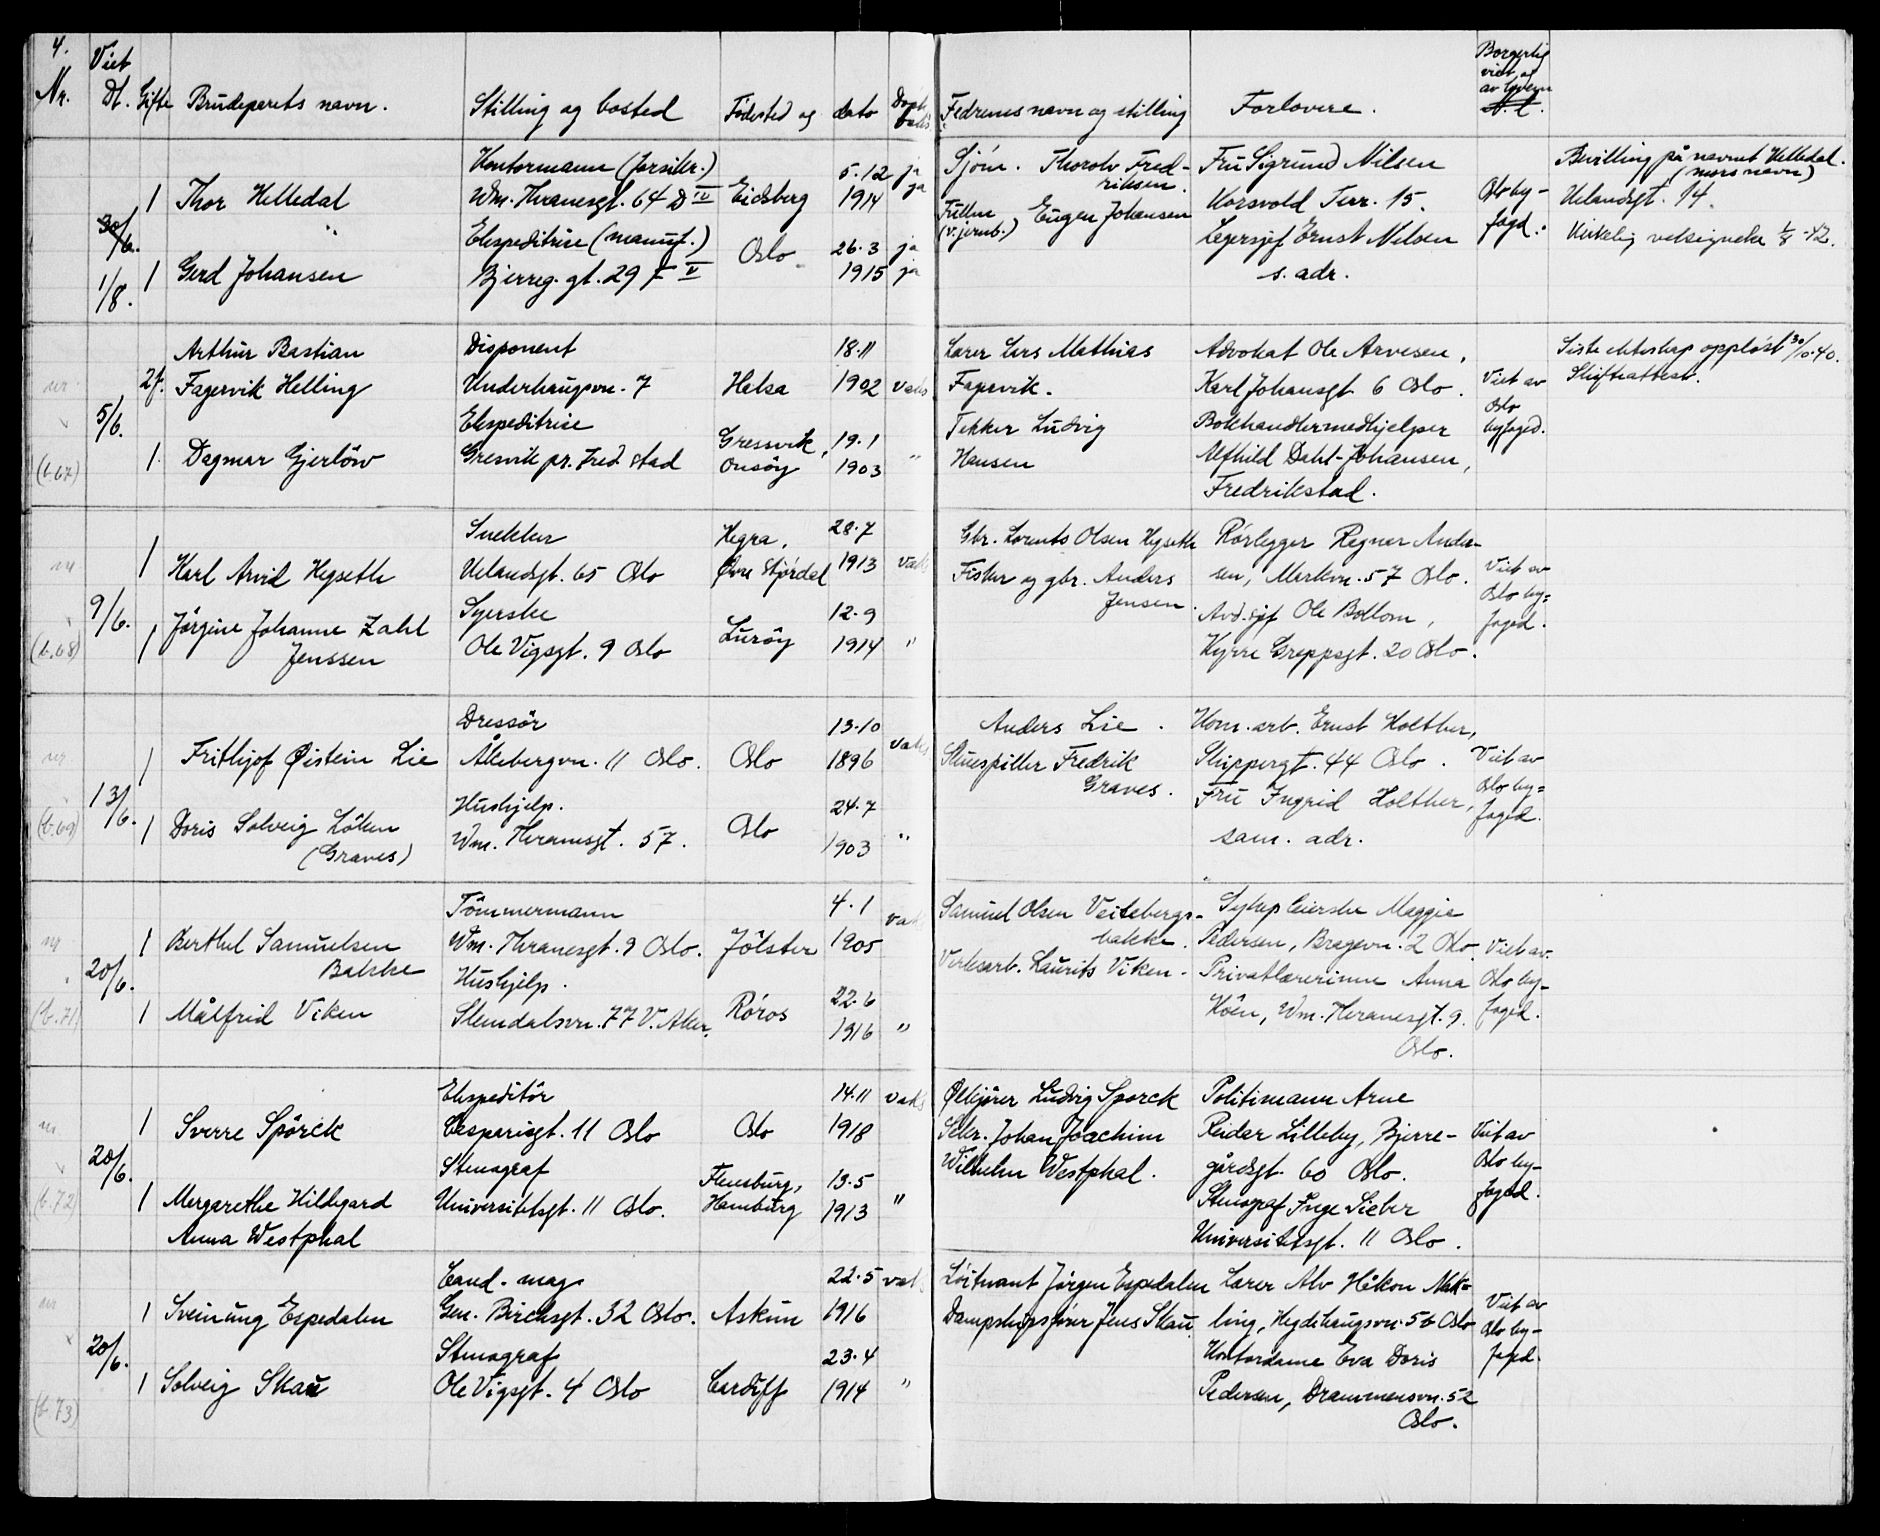 4.
Nr.
Viet
Dt.
Gifte
Brudeparets navn.
Stilling og bosted
Födested og
dato
Fedrenes navn og stilling
Forlovere.
Borgerlig
viet og
30/6.
1/8.
1
Thor Helledal
Kontormann (forsikr.)
Wm. Thranesgt. 64 D IV
Eidsberg
5.12
1914
ja
ja
Sjöm. Thorolv Fred-
riksen.
Fru Sigrund Nilsen
Korsvold Terr. 15.
Oslo by-
fogd.
Bevilling på navnet Helledal.
(mors navn)
Uelandsgt. 14.
1
Gerd Johansen
Ekspeditrise (manuf.)
Bjerreg. gt. 29 F V
Oslo
26.3
1915
ja
ja
(v. jernb.) Eugen Johansen
Lagersjef Ernst Nilsen
s. adr.
Kirkelig velsignelse 1/8-42.
5/6.
(b.67)
2f.
Arthur Bastian
Fagervik Helling
Disponent
Underhaugsvn. 7
Helsa
18.11
1902
vaks
Lærer Lars Mathias
Fagervik.
Advokat Ole Arvesen,
Karl Johansgt 6 Oslo.
Viet av
Oslo
byfogd.
Siste ekteskap opplöst 30/10.40.
Skifteattest.
1.
Dagmar Gjerlöw
Ekspeditrise
Gresvik pr. Fred.stad
Gressvik,
Onsöy
19.1
1903
"
Tekker Ludvig
Hansen
Bokhandlermedhjelper
Alfhild Dahl-Johansen,
Fredrikstad.
9/6.
(b.68)
1
Karl Arvid Hegseth
Snekker
Uelandsgt. 65 Oslo
Hegra,
Övre Stjördal
28.7
1913
vaks
Gbr. Lorents Olsen Hegseth
Rörlegger Regner Ander-
sen, Markvn. 57 Oslo.
Viet av
Oslo by-
foged.
1
Jörgine Johanne Zahl
Jenssen
Syerske
Ole Vigsgt. 9 Oslo
Luröy
12.9
1914
"
Fisker og gbr. Anders
Jensen.
Avd.sjef Ole Bollom,
Kyrre Greppsgt. 20 Oslo.
13/6.
(b.69)
1
Frithjof Øistein Lie
Dressör
Ållebergvn. 11 Oslo.
Oslo
13.10
1896
vaks
Anders Lie.
Kom. arb. Ernst Holther,
Skippergt. 44 Oslo.
Viet av
Oslo by-
foged.
1
Doris Solveig Löken
(Graves)
Hushjelp.
Wm. Thranesgt. 57.
Oslo
24.7
1903
"
Skuespiller Fredrik
Graves.
Fru Ingrid Holther,
sam. adr.
20/6.
(b.71)
1
Berthel Samuelsen
Bakke
Tömmermann
Wm. Thranesgt. 9 Oslo.
Jölster
4.1
1905
vaks
Samuel Olsen Veitebergs-
bakke.
Sykepleierske Maggie
Pedersen, Bragevn. 2 Oslo.
Viet av
Oslo by-
foged.
1
Målfrid Viken
Hushjelp.
Slemdalsvn. 77 V. Aker.
Röros
22.6
1916
"
Verksarb. Laurits Viken.
Privatlærerinne Anna
Köen, Wm. Thranesgt. 9.
Oslo.
20/6.
(b.72)
1
Sverre Spörck
Ekspeditör
Casparisgt. 11 Oslo
Oslo
14.11
1918
vaks
Ølkjörer Ludvig Sporck
Politimann Arne
Reidar Lilleby, Bjerre-
gårdsgt. 60 Oslo.
Viet av
Oslo by-
foged.
1
Margarethe Hildegard
Anna Westphal
Stenograf
Universitetsgt. 11 Oslo.
Flensburg,
Hamburg
13.5
1913
"
Sekr. Johan Joachim
Wilhelm Westphal.
Stenograf Inge Sieber
Universitetsgt. 11 Oslo.
20/6.
(b.73)
1
Sveinung Espedalen
Cand. mag.
Gen. Birchsgt. 32 Oslo.
Askim
22.5
1916
Löitnant Jörgen Espedalen
Lærer Alv Håkon
ling, Hegdehaugsvn. 5b Oslo
Viet av
Oslo by-
foged.
1
Solveig Skau
Stenograf
Ole Vigsgt. 4 Oslo
Cardiff
23.4
1914
"
Dampskipsförer Jens Skau
Kontordame Eva Doris
Pedersen, Drammensvn. 52
Oslo.